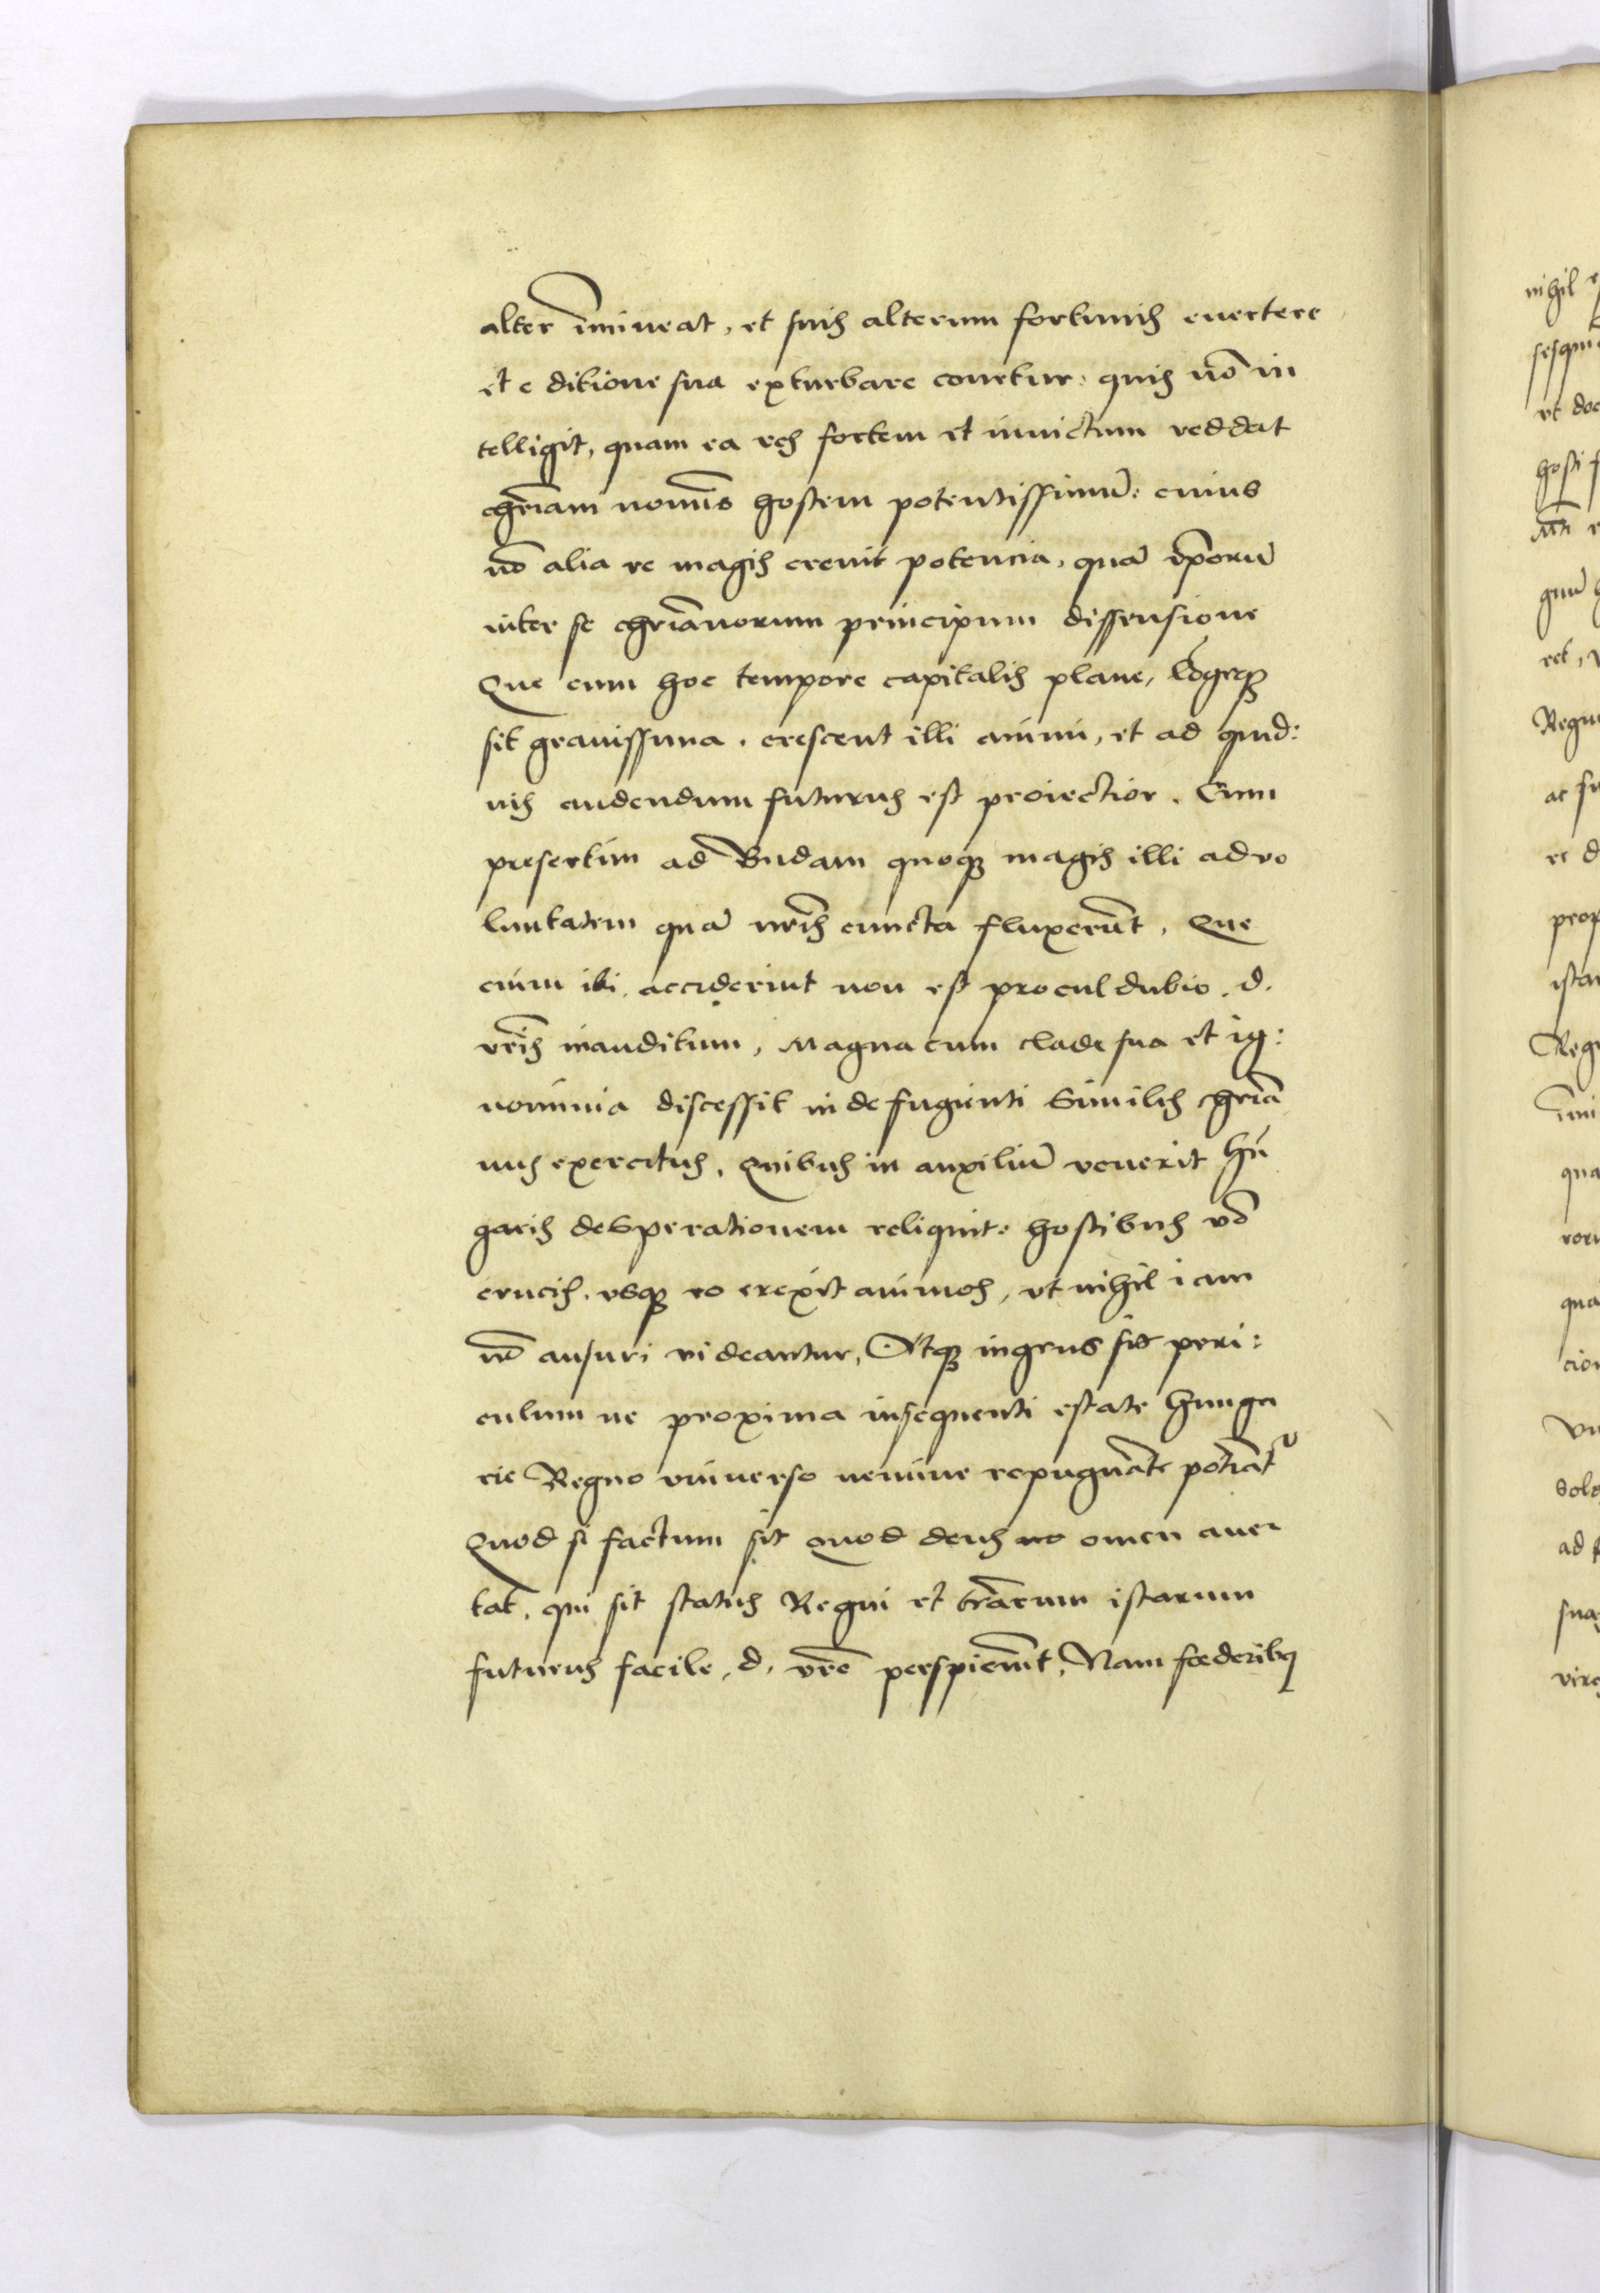 alter im̄ineat, et suis alterum fortunis euertere
et e ditione sua exturbare conetur: quis nō in
telligit, quam ea res fortem et inuictum reddat
chr̄iani nom̄is hostem potentissimū: cuius
nō alia re magis creuit potencia, quā ip̄orū
inter se chr̄ianorum principum dissensione
Que cum hoc tempore capitalis plane, lōgeqȝ
sit grauissima. crescent illi animi, et ad quid:
uis audendum futurus est proiectior. Cum
presertim ad Budam quoqȝ magis illi ad vo
luntatem quā nr̄is cuncta fluxerūt, Que
enim ibi acciderint non est procul dubio. d.
vr̄is inauditum, Magna cum clade sua et ig:
nominia discessit inde fugienti similis chr̄ia
nus exercitus. Quibus in auxiliū venerit hū
garis desperationem reliquit: hostibus vō
crucis. vsqȝ eo erexit animos, vt nihil iam
nō ausuri videantur, Atqȝ ingens sit peri:
culum ne proxima insequenti estate hunga
rie Regno vniuerso nemine repugnāte potiāt͛
Quod si factum sit quod deus eo omen auer
tat, qui sit status Regni et terrarum istarum
futurus facile. d. vr̄e perspiciūt, Nam fœderibȝ
nihil
sesqui
vt doc
hosti
gnū
ret,
Regn
ac su
et d
prop
istar
Reg
im̄i
qua
roru
qua
cion
Vn
Sole
ad
sua
vire